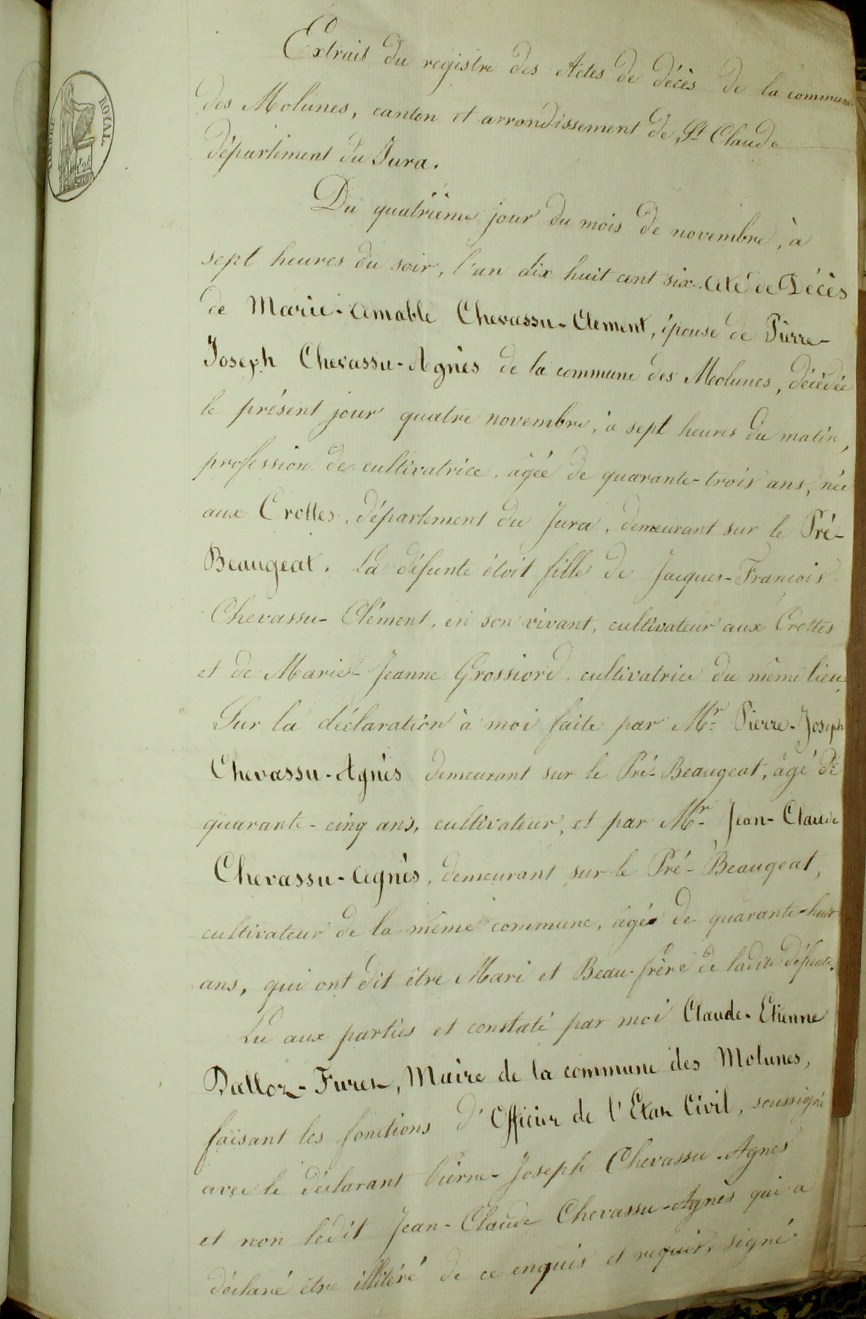 ROYAL
Extrait du registre des Actes de décès de la commune
des Molunes, canton et arrondissement de St Claude
département du Jura.
Du quatrième jour du mois de novembre, à
sept heures du soir, l'an dix huit cent six. Acte de Décès
de Marie-Amable Chevassu-Clement, épouse de Pierre-
Joseph Chevassu-Agnès de la commune des Molunes, décédée
le présent jour quatre novembre, à sept heures du matin,
profession de cultivatrice, âgée de quarante-trois ans, née
aux Crottes, département du Jura, demeurant sur le Pré-
Beaugeat. La défunte étoit fille de Jacques-François
Chevassu-Clément, en son vivant, cultivateur aux Crottes
et de Marie-Jeanne Grossiord cultivatrice du même lieu
Sur la déclaration à moi faite par Mr Pierre-Joseph
Chevassu-Agnès demeurant sur le Pré-Beaugeat, âgé de
quarante-cinq ans, cultivateur, et par Mr Jean-Claude
Chevassu-Agnès, demeurant sur le Pré-Beaugeat,
cultivateur de la même commune, âgé de quarante-huit
ans, qui ont dit être Mari et Beau-frère de ladite défunte.
Lu aux parties et constaté par moi Claude-Etienne
Dalloz-Furet, Maire de la commune des Molunes,
faisant les fonctions d'Officier de l'Etat Civil, soussigné
avec le déclarant Pierre-Joseph Chevassu-Agnès
et non ledit Jean-Claude Chevassu-Agnès qui a
déclaré être illitéré de ce enquis et requis, signé